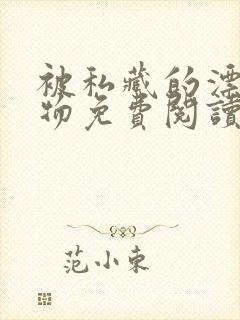 被私藏的漂
物免費閱讀
范小東